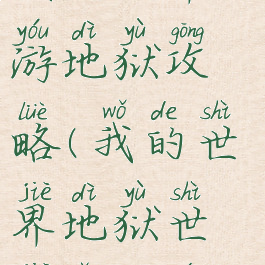 yóu dì yù gōng
游地狱攻
lüè wǒ de shì
略(我的世
jiè dì yù shì
界地狱世